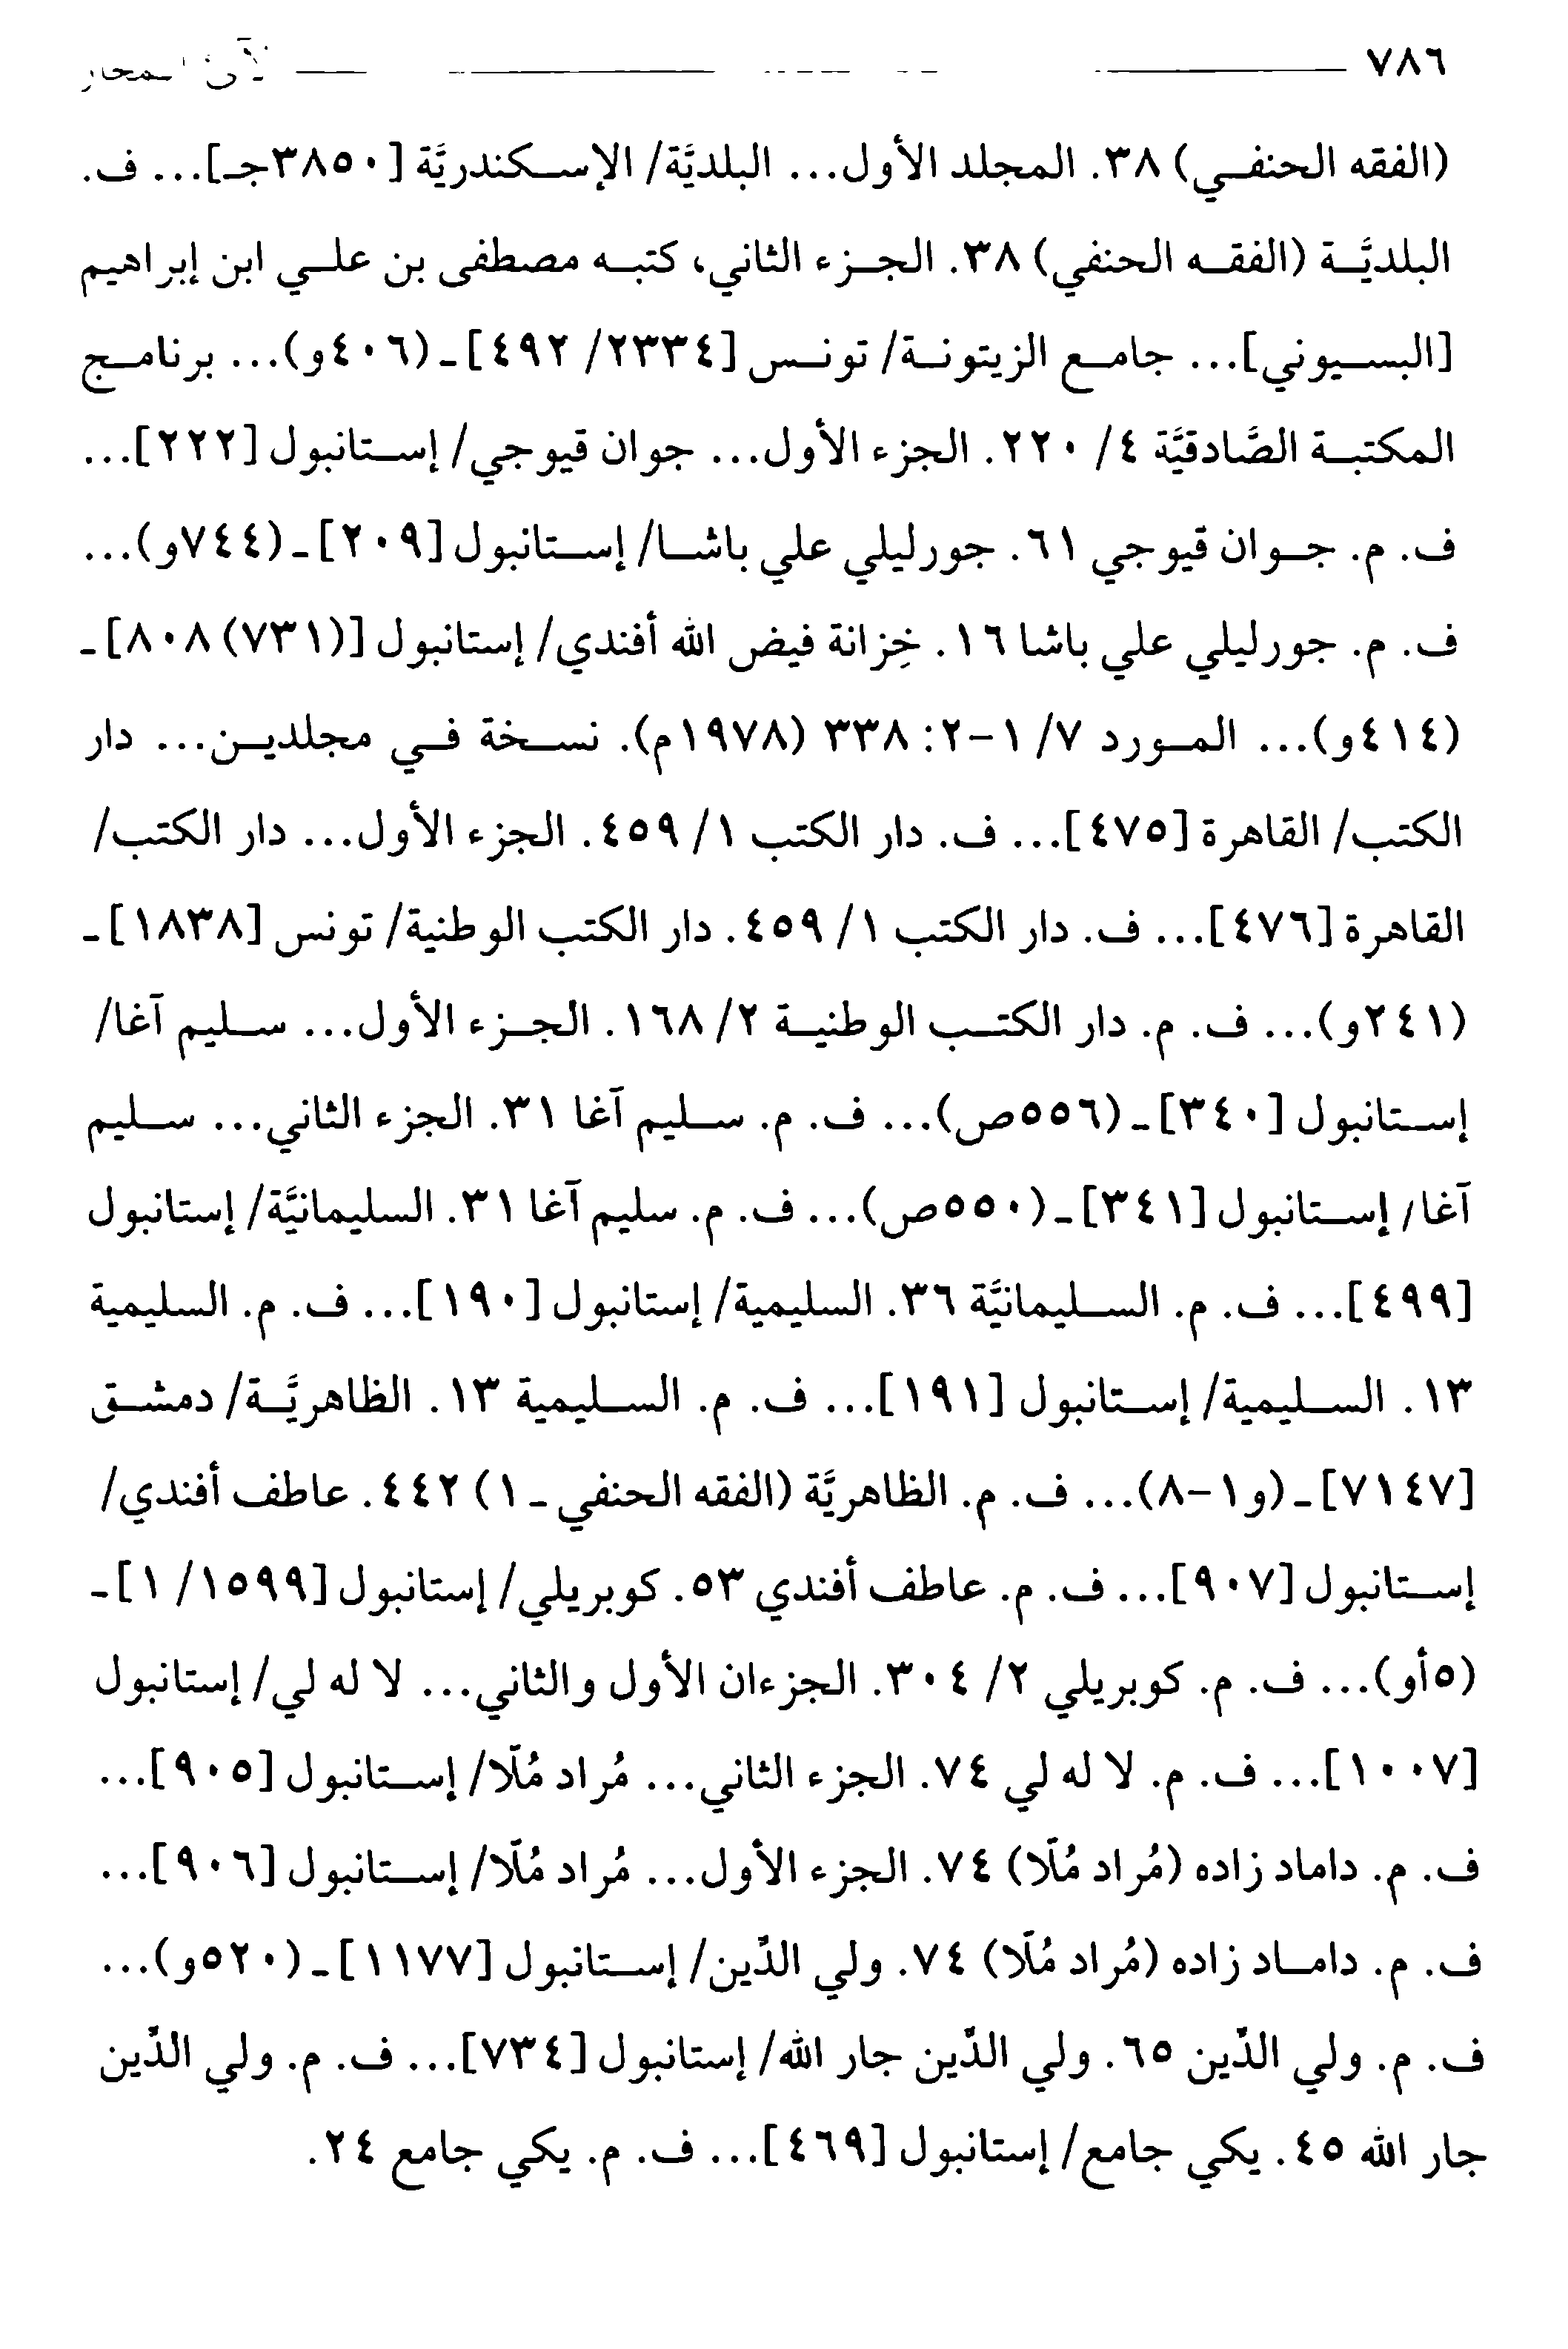 ٧٨٦
(الفقه الحنفي) ٣٨. المجلد الأول... البلديَّة/ الإسكندريَّة [٣٨٥٠جـ]... ف.
البلديَّة (الفقه الحنفي) ٣٨. الجزء الثاني، كتبه مصطفى بن علي ابن إبراهيم
[البسيوني]... جامع الزيتونة/ تونس [٢٣٣٤/ ٤٩٢] ـ (٤٠٦و)... برنامج
المكتبة الصَّادقيَّة ٤/ ٢٢٠. الجزء الأول... جوان قيوجي/ إستانبول [٢٢٢]...
ف. م. جوان قيوجي ٦١. جورليلي علي باشا/ إستانبول [٢٠٩] ـ (٧٤٤و)...
ف. م. جورليلي علي باشا ١٦. خِزانة فيض الله أفندي/ إستانبول [(٧٣١) ٨٠٨] ـ
(٤١٤و)... المورد ٧/ ١-٢: ٣٣٨ (١٩٧٨م). نسخة في مجلدين... دار
الكتب/ القاهرة [٤٧٥]... ف. دار الكتب ١/ ٤٥٩. الجزء الأول... دار الكتب/
القاهرة [٤٧٦]... ف. دار الكتب ١/ ٤٥٩. دار الكتب الوطنية/ تونس [١٨٣٨] ـ
(٢٤١و)... ف. م. دار الكتب الوطنية ٢/ ١٦٨. الجزء الأول... سليم آغا/
إستانبول [٣٤٠] ـ (٥٥٦ص)... ف. م. سليم آغا ٣١. الجزء الثاني... سليم
آغا/ إستانبول [٣٤١] ـ (٥٥٠ص)... ف. م. سليم آغا ٣١. السليمانيَّة/ إستانبول
[٤٩٩]... ف. م. السليمانيَّة ٣٦. السليمية/ إستانبول [١٩٠]... ف. م. السليمية
١٣. السليمية/ إستانبول [١٩١]... ف. م. السليمية ١٣. الظاهريَّة/ دمشق
[٧١٤٧] ـ (و١-٨)... ف. م. الظاهريَّة (الفقه الحنفي ـ ١) ٤٤٢. عاطف أفندي/
إستانبول [٩٠٧]... ف. م. عاطف أفندي ٥٣. كوبريلي/ إستانبول [١٥٩٩/ ١] ـ
(٥أو)... ف. م. كوبريلي ٢/ ٣٠٤. الجزءان الأول والثاني... لا له لي/ إستانبول
[١٠٠٧]... ف. م. لا له لي ٧٤. الجزء الثاني... مُراد مُلَّا/ إستانبول [٩٠٥]...
ف. م. داماد زاده (مُراد مُلَّا) ٧٤. الجزء الأول... مُراد مُلَّا/ إستانبول [٩٠٦]...
ف. م. داماد زاده (مُراد مُلَّا) ٧٤. ولي الدِّين/ إستانبول [١١٧٧] ـ (٥٢٠و)...
ف. م. ولي الدِّين ٦٥. ولي الدِّين جار الله/ إستانبول [٧٣٤]... ف. م. ولي الدِّين
جار الله ٤٥. يكي جامع/ إستانبول [٤٦٩]... ف. م. يكي جامع ٢٤.